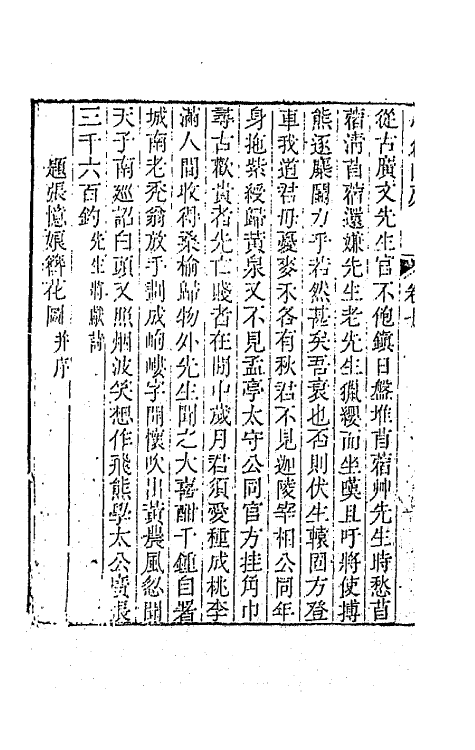 卷七
從古廣文先生官不飽鎮日盤堆苜蓿艸先生時愁苜
蓿淸苜蓿還嫌先生老先生獵纓而坐嘆且吁將使搏
熊逐麋鬭力乎若然甚矣吾衰也否則伏生轅固方登
車我道君毋憂麥禾各有秋君不見迦陵宰相公同年
身拖紫綬歸黃泉又不見孟亭太守公同官方挂角巾
尋古歡貴者先亡賤者在閒中歲月君須愛種成桃李
滿人間收得桑榆歸物外先生聞之大喜酣千鍾自署
城南老禿翁放手劃成岣嶁字開懷吹出黃農風忽聞
天子南廵詔白頭又照烟波笑想作飛熊學太公廣張
三千六百釣先生將獻詩
題張憶娘簪花圖并序